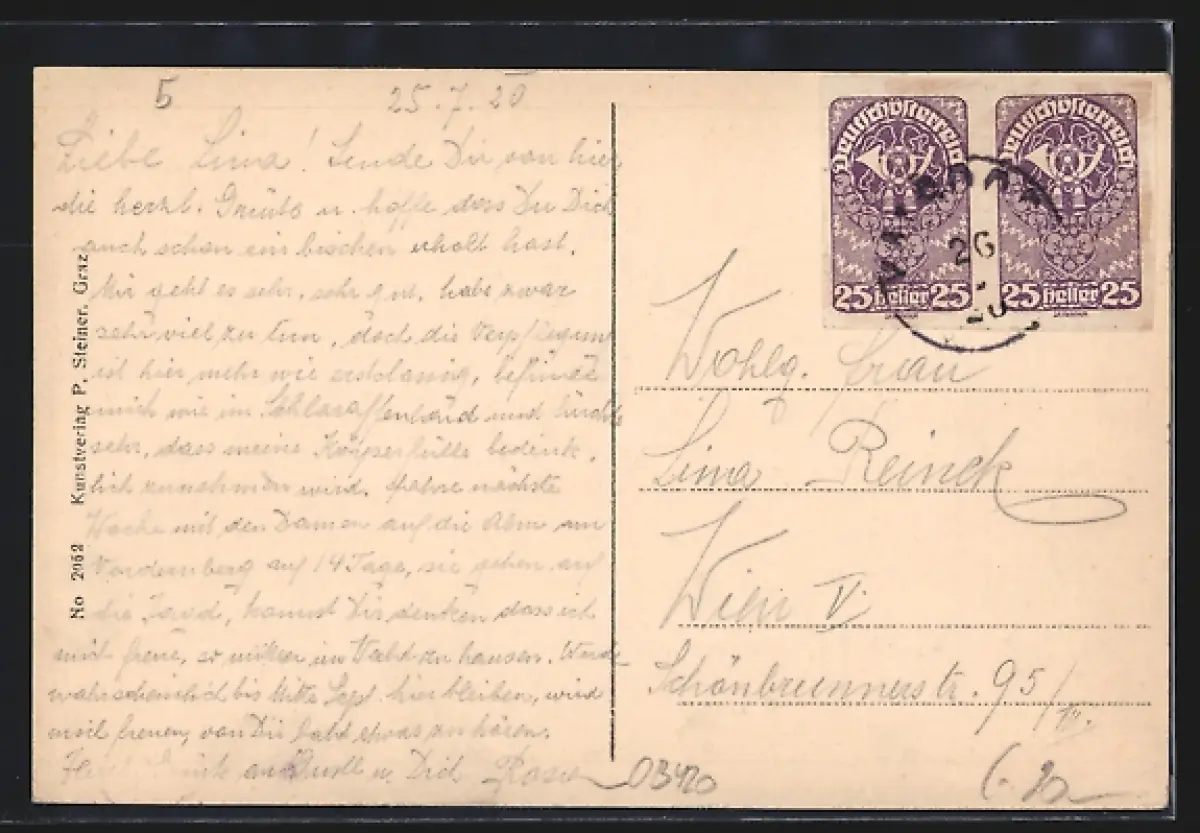 5
25.7.20
Liebe Lina! Sende Dir von hier
die herzl. Grüße u. hoffe dass Du Dich
auch schon ein bischen erholt hast.
Mir geht es sehr, sehr gut, habe zwar
sehr viel zu tun, doch die Verpflegung
ist hier mehr wie erstklassig, befinde
mich wie im Schlaraffenland und fürchte
sehr, dass meine Körperfülle bedenk-
lich zunehmen wird. Fahre nächste
Woche mit den Damen auf die Alm in
Vordernberg auf 14 Tage, sie gehen auf
die Jagd, kannst Dir denken dass ich
mich freue, so mitten im Wald zu hausen. Werde
wahrscheinlich bis Mitte Sept. hier bleiben, wird
mich freuen, von Dir bald etwas zu hören.
u. Dich Rosa
No 2962 Kunstverlag P. Steiner, Graz
Deutschösterreich
25 Heller 25
Deutschösterreich
25 Heller 25
26
20
Wohlg. Frau
Lina Reinek
Wien V.
Schönbrunnerstr. 95/
OB420